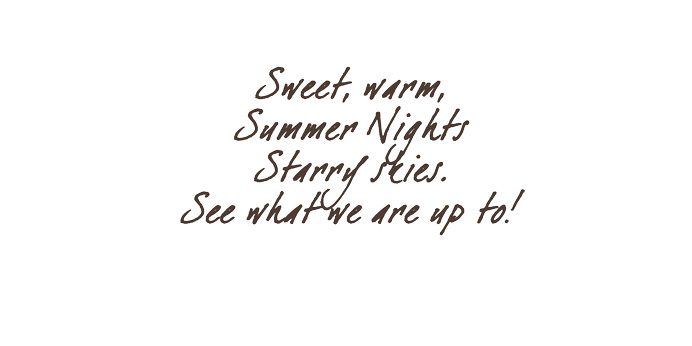 Sweet, warm,
Summer Nights
Starry skies.
See what we are up to!